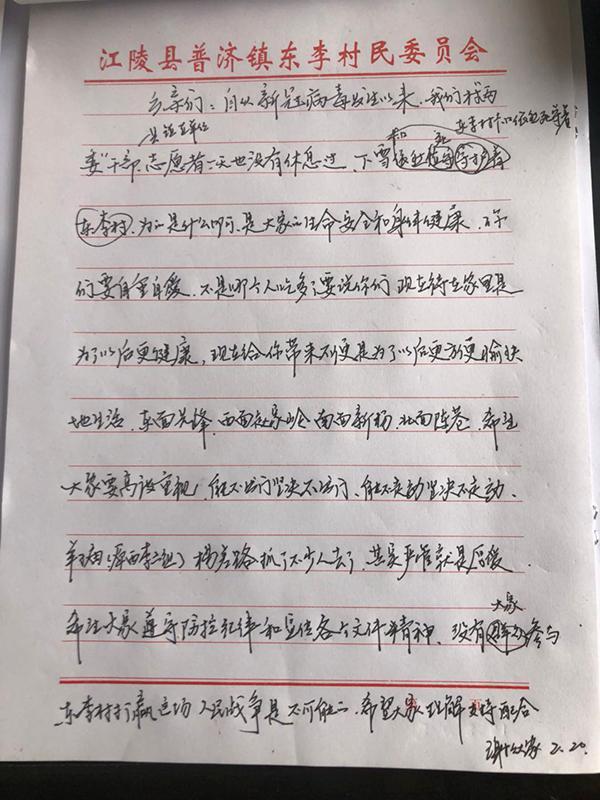 江陵县普济镇东李村民委员会
乡亲们：自从新冠病毒发生以来，我们村两
和 东李村
委干部、志愿者一天也没有休息过，下雪
东李村，为的是什么 是大家的生命安全和身体健康，你
们要自重自爱，不是哪个人吃多了要说你们，现在待在家里是
为了以后更健康，现在给你带来不便是为了以后更方便更愉快
地生活，东面先锋，西面 南面新杨，北面陈巷，希望
大家要高度重视，能不出门坚决不出门，能不走动坚决不走动、
抓了不少人去了，其实严准就是厚爱，
大家
希望大家遵守防控纪律和各个文件精神，没有 参与
东李村打赢这场人民战争是不可能的，希望大家理解支持配合
2.20.